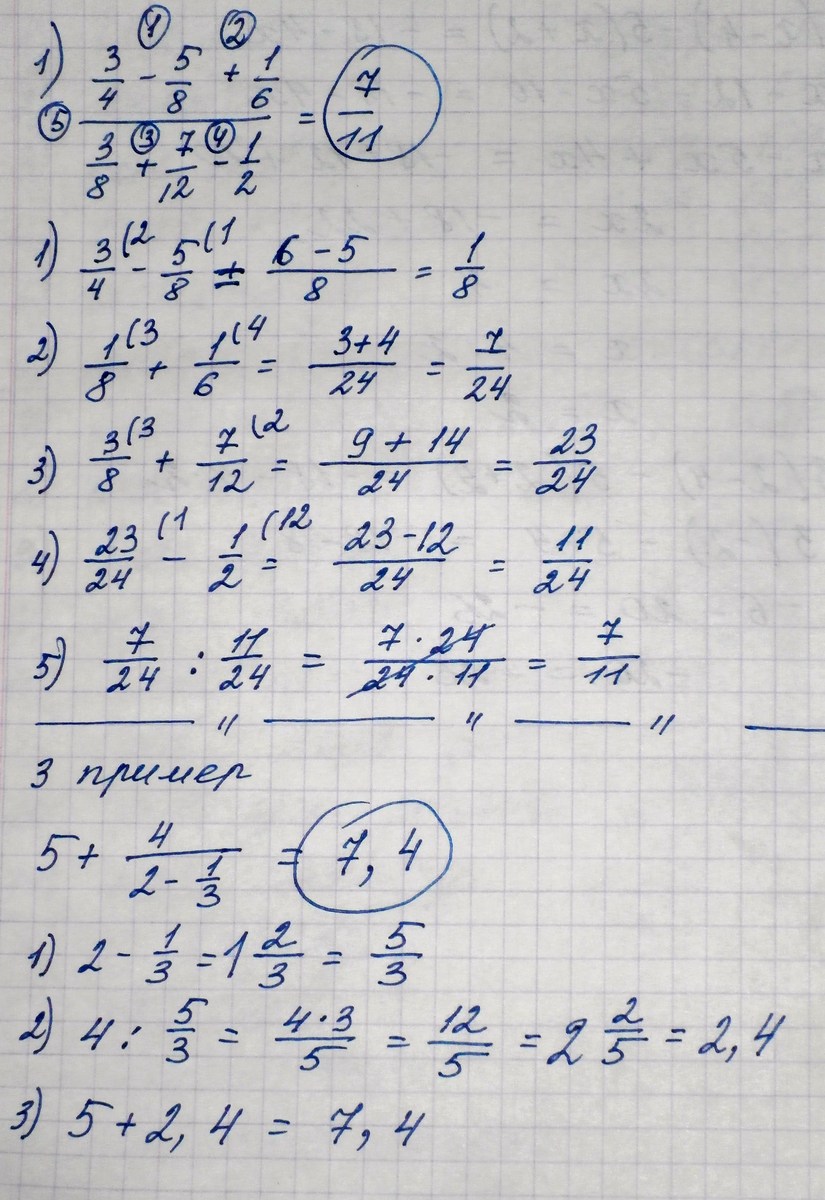 ① ②
1) 3/4 - 5/8 + 1/6
⑤ ――― = 7/11
③ ④
3/8 + 7/12 - 1/2
1) 3/4(2 - 5/8(1 = 6-5/8 = 1/8
2) 1/8(3 + 1/6(4 = 3+4/24 = 7/24
3) 3/8(3 + 7/12(2 = 9+14/24 = 23/24
4) 23/24(1 - 1/2(12 = 23-12/24 = 11/24
5) 7/24 : 11/24 = 7·24/24·11 = 7/11
――― " ――― " ――― " ―――
3 пример
5 + 4/(2 - 1/3) = 7,4
1) 2 - 1/3 = 1 2/3 = 5/3
2) 4 : 5/3 = 4·3/5 = 12/5 = 2 2/5 = 2,4
3) 5 + 2,4 = 7,4